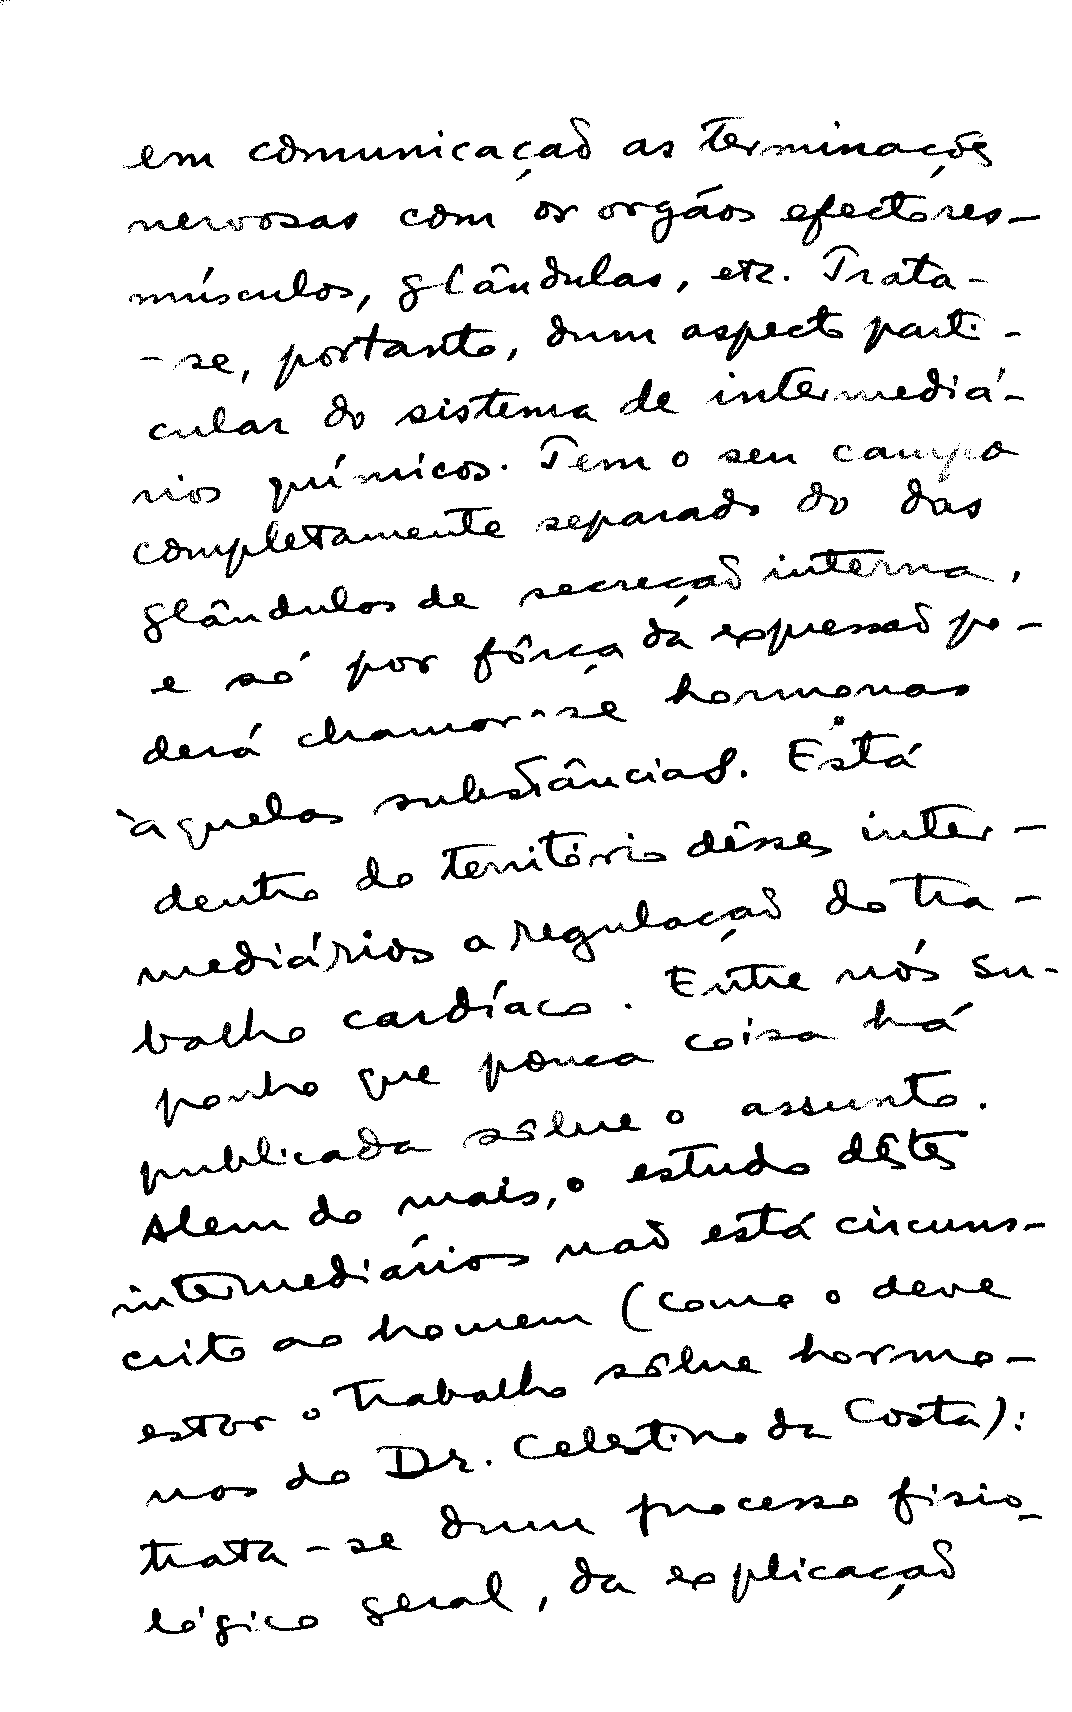 em comunicação as terminações
nervosas com os orgãos efectores–
músculos, glândulas, etc. Trata-
-se, portanto, dum aspecto parti-
cular do sistema de intermediá-
rios químicos. Tem o seu campo
completamente separado do das
glândulas de secreção interna,
e só por fôrça da expressão po-
derá chamar-se hormonas
àquelas substâncias. Está
dentro do território dêsses inter-
mediários a regulação do tra-
balho cardíaco. Entre nós su-
ponho que pouca coisa há
publicada sôbre o assunto.
Alem do mais, o estudo dêstes
intermediários não está circuns-
crito ao homem (como o deve
estar o trabalho sôbre hormo-
nas do Dr. Celestino da Costa):
trata-se dum processo fisio-
lógico geral, da explicação